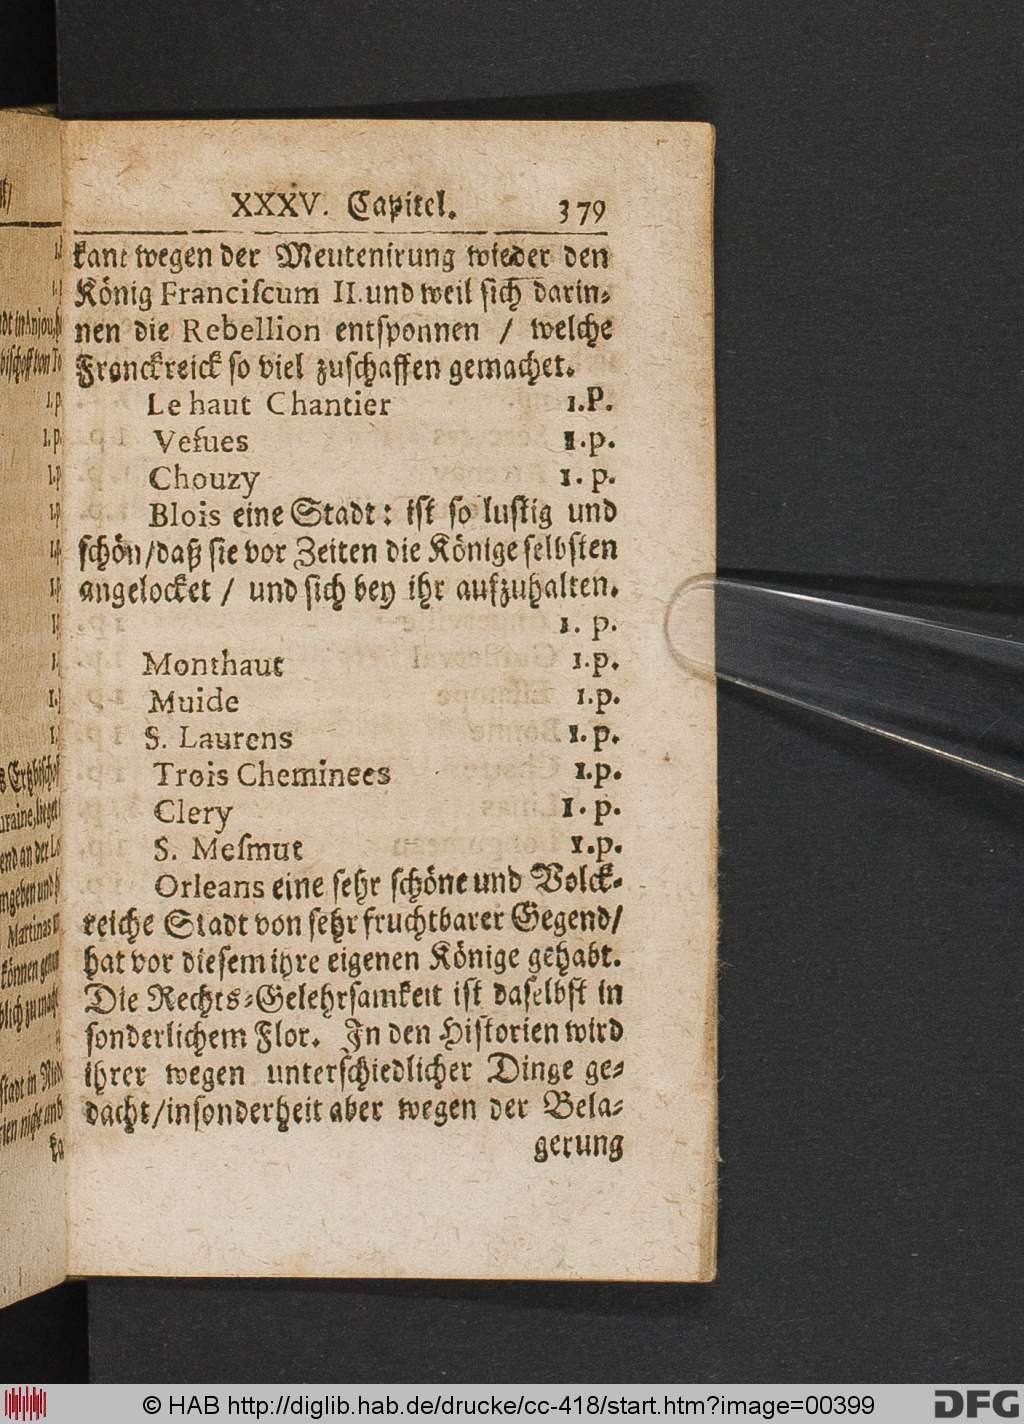 XXXV. Capitel. 379
kant wegen der Meutenirung wieder den
König Franciſcum II. und weil ſich darin⸗
nen die Rebellion entſponnen / welche
Franckreick ſo viel zuſchaffen gemachet.
Le haut Chantier 1.P.
Veſues 1.p.
Chouzy 1. p.
Blois eine Stadt: iſt ſo luſtig und
ſchön/daß ſie vor Zeiten die Könige ſelbſten
angelocket / und ſich bey ihr aufzuhalten.
1. p.
Monthaut 1.p.
Muide 1.p.
S. Laurens 1.p.
Trois Cheminees 1.p.
Clery 1. p.
S. Meſmut 1.p.
Orleans eine ſehr ſchöne und Volck⸗
reiche Stadt von ſehr fruchtbarer Gegend/
hat vor dieſem ihre eigenen Könige gehabt.
Die Rechts⸗Gelehrſamkeit iſt daſelbſt in
ſonderlichem Flor. In den Hiſtorien wird
ihrer wegen unterſchiedlicher Dinge ge⸗
dacht/inſonderheit aber wegen der Bela⸗
gerung
© HAB http://diglib.hab.de/drucke/cc-418/start.htm?image=00399
DFG